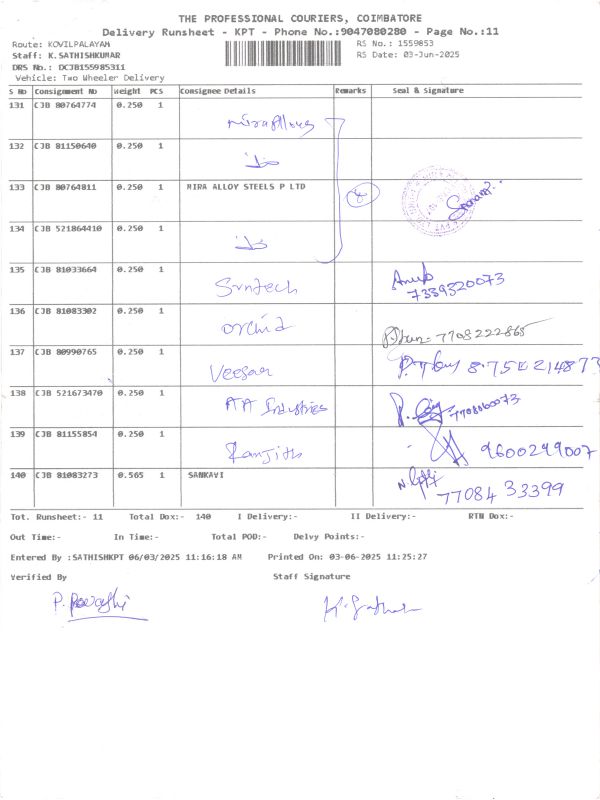 THE PROFESSIONAL COURIERS, COIMBATORE
Delivery Runsheet - KPT - Phone No.:9047080280 - Page No.:11
Route: KOVILPALAYAM RS No.: 1559853
Staff: K.SATHISHKUMAR RS Date: 03-Jun-2025
DRS No.: DCJB155985311
Vehicle: Two Wheeler Delivery
S No Consignment No Weight PCS Consignee Details Remarks Seal & Signature
131 CJB 80764774 0.250 1
132 CJB 81150640 0.250 1
133 CJB 80764811 0.250 1 MIRA ALLOY STEELS P LTD
134 CJB 521864410 0.250 1
135 CJB 81033664 0.250 1 Suntech Anup
7339320073
136 CJB 81083302 0.250 1 Orchid 7708222865
137 CJB 80990765 0.250 1 Veesaa
138 CJB 521673470 0.250 1 Industries 7708860073
139 CJB 81155854 0.250 1 Ranjith 9600299007
140 CJB 81083273 0.565 1 SANKAVI 77084 33399
Tot. Runsheet:- 11 Total Dox:- 140 I Delivery:- II Delivery:- RTN Dox:-
Out Time:- In Time:- Total POD:- Delvy Points:-
Entered By :SATHISHKPT 06/03/2025 11:16:18 AM Printed On: 03-06-2025 11:25:27
Verified By Staff Signature